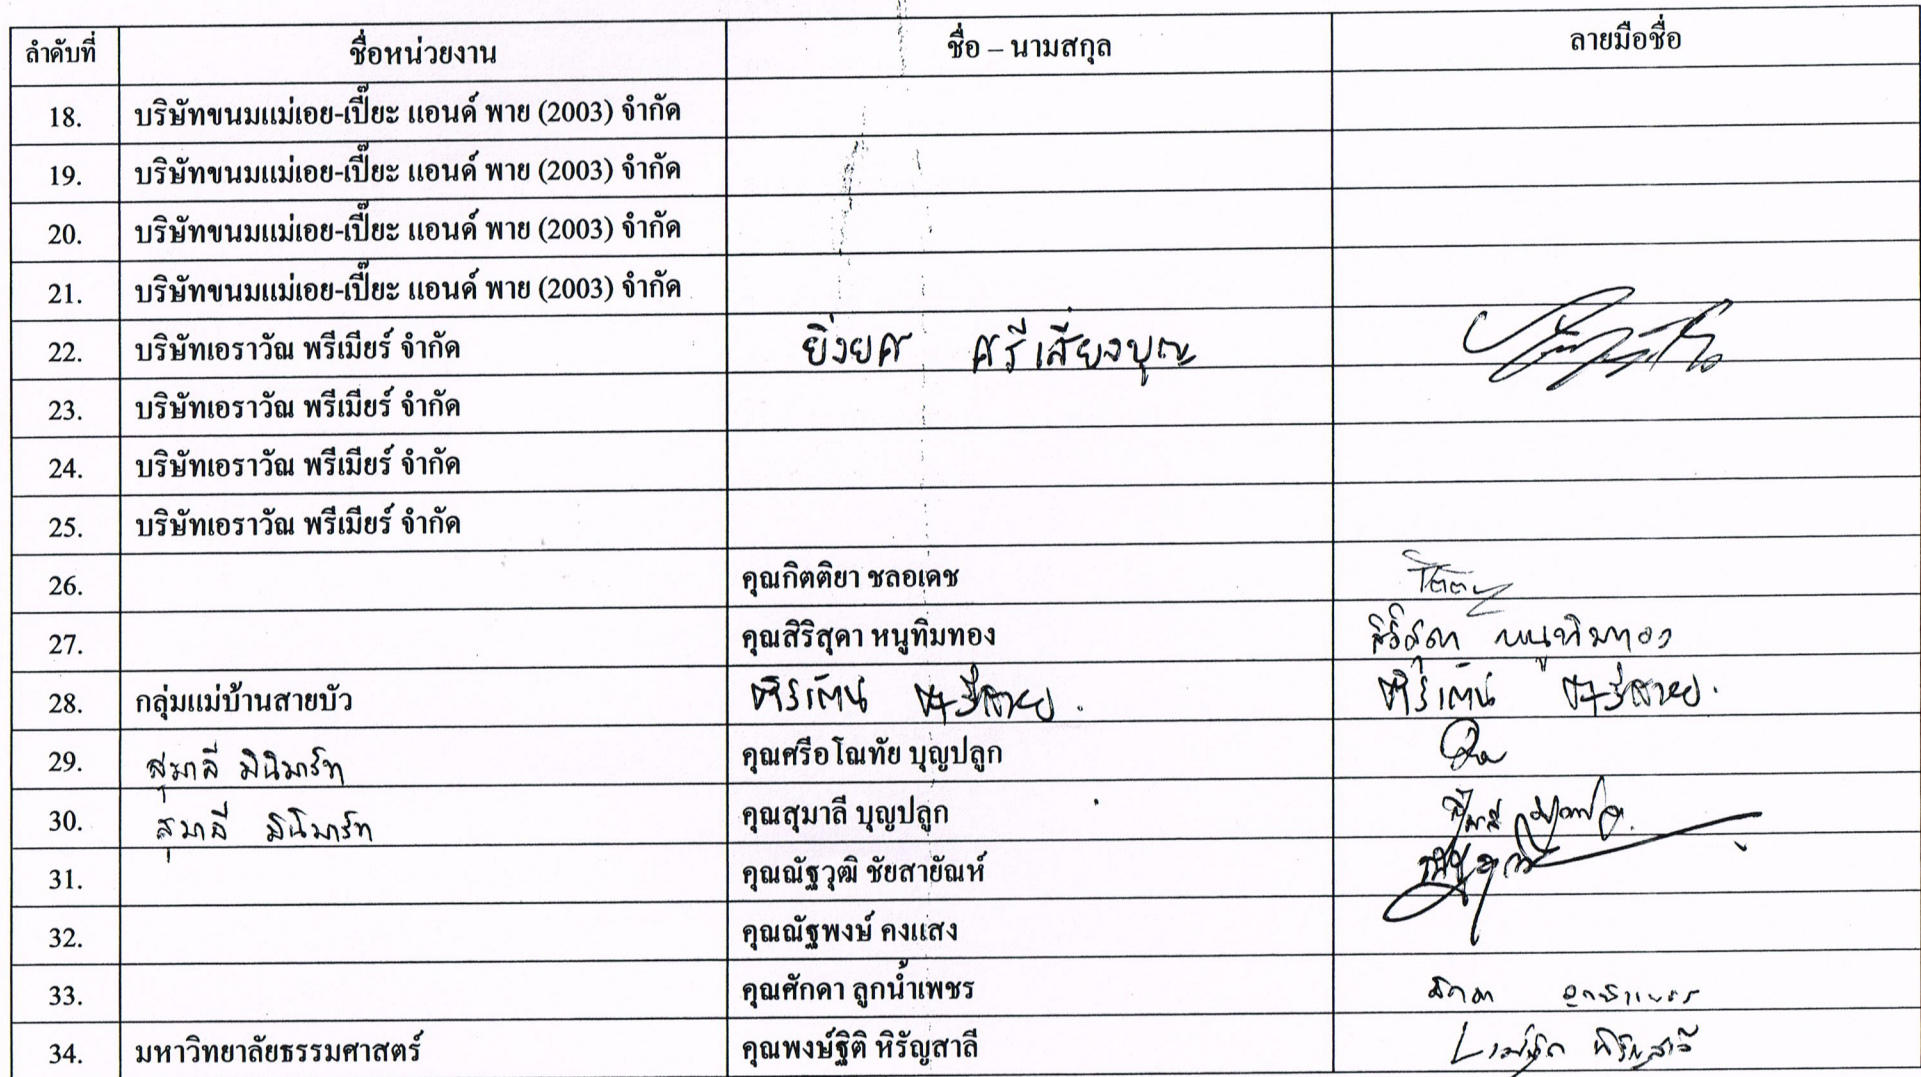 ลำดับที่ ชื่อหน่วยงาน ชื่อ – นามสกุล ลายมือชื่อ
18. บริษัทขนมแม่เอย-เปี๊ยะ แอนด์ พาย (2003) จำกัด
19. บริษัทขนมแม่เอย-เปี๊ยะ แอนด์ พาย (2003) จำกัด
20. บริษัทขนมแม่เอย-เปี๊ยะ แอนด์ พาย (2003) จำกัด
21. บริษัทขนมแม่เอย-เปี๊ยะ แอนด์ พาย (2003) จำกัด
22. บริษัทเอราวัณ พรีเมียร์ จำกัด ยิ่งยศ ศรีเสียงบุญ
23. บริษัทเอราวัณ พรีเมียร์ จำกัด
24. บริษัทเอราวัณ พรีเมียร์ จำกัด
25. บริษัทเอราวัณ พรีเมียร์ จำกัด
26. คุณกิตติยา ชลอเดช
27. คุณสิริสุดา หนูทิมทอง สิริสุดา หนูทิมทอง
28. กลุ่มแม่บ้านสายบัว
29. สุมาลี มินิมาร์ท คุณศรีอโณทัย บุญปลูก
30. สุมาลี มินิมาร์ท คุณสุมาลี บุญปลูก สุมาลี
31. คุณณัฐวุฒิ ชัยสายัณห์
32. คุณณัฐพงษ์ คงแสง
33. คุณศักดา ลูกน้ำเพชร
34. มหาวิทยาลัยธรรมศาสตร์ คุณพงษ์ฐิติ หิรัญสาลี หิรัญสาลี